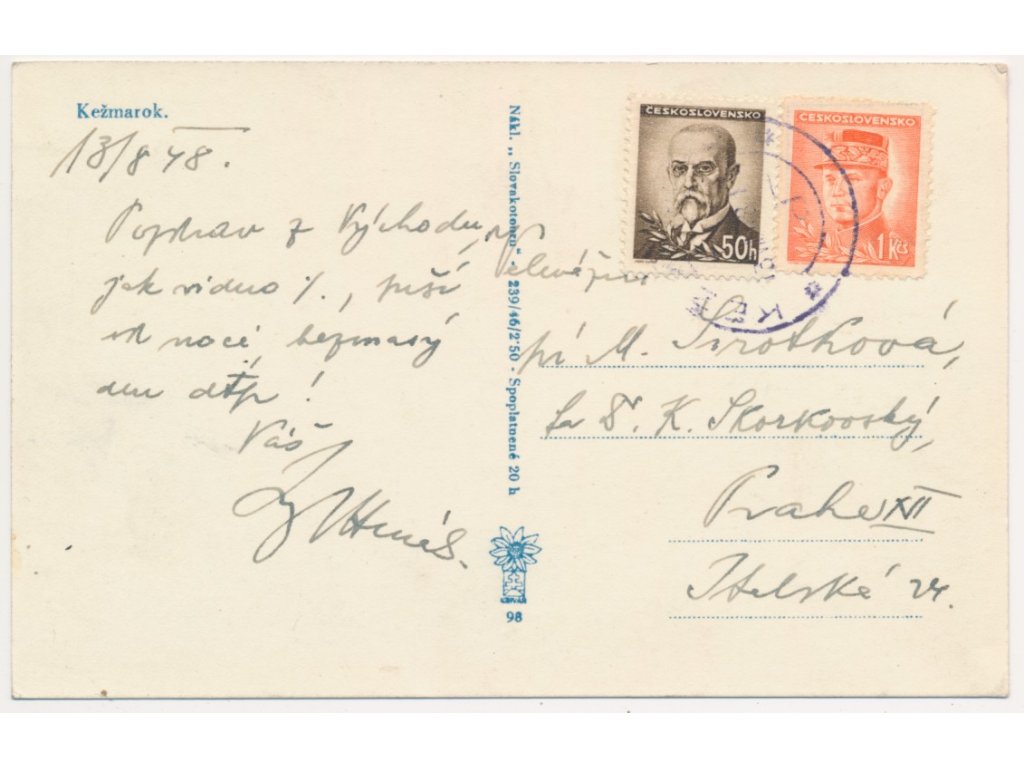 Kežmarok.
13/8 48.
Pozdrav z Východu,
jak vidno %., píší
v noci
Váš
Nákl. „Slovakotour“ - 239/46/2·50 - Spoplatnené 20 h
98
ČESKOSLOVENSKO
50h
ČESKOSLOVENSKO
1 Kčs
KEŽ
Velevážená
pí M. Sirotková,
fa Dr. K. Skorkovský,
Praha XII
Italská 24.